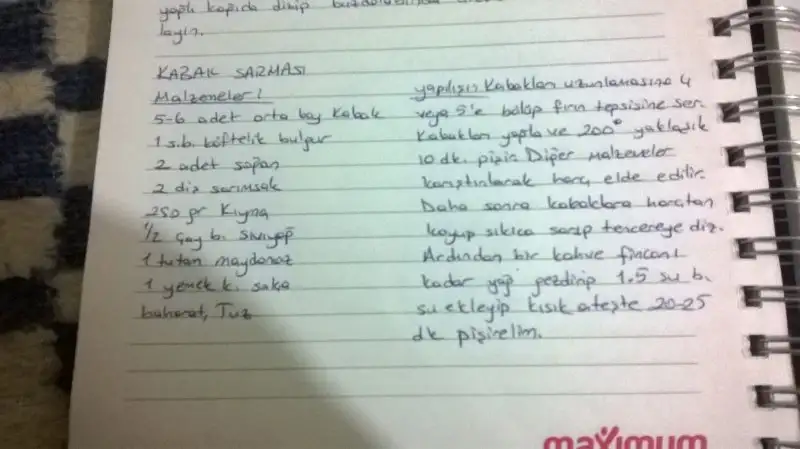 yağlı kağıda dizip
layın.
KABAK SARMASI
Malzemeler!
5-6 adet orta boy Kabak
1 s.b. köftelik bulgur
2 adet soğan
2 diş sarımsak
250 gr Kıyma
1/2 çay b. sıvıyağ
1 tutam maydanoz
1 yemek k. salça
baharat, Tuz
yapılışı: Kabakları uzunlamasına 4
veya 5'e bölüp fırın tepsisine ser.
Kabakları yağla ve 200° yaklaşık
10 dk. pişir. Diğer malzemeler
karıştırılarak harç elde edilir.
Daha sonra kabaklara harçtan
koyup sıkıca sarıp tencereye diz.
Ardından bir kahve fincanı
kadar yağ gezdirip 1.5 su b.
su ekleyip kısık ateşte 20-25
dk pişirelim.
maximum